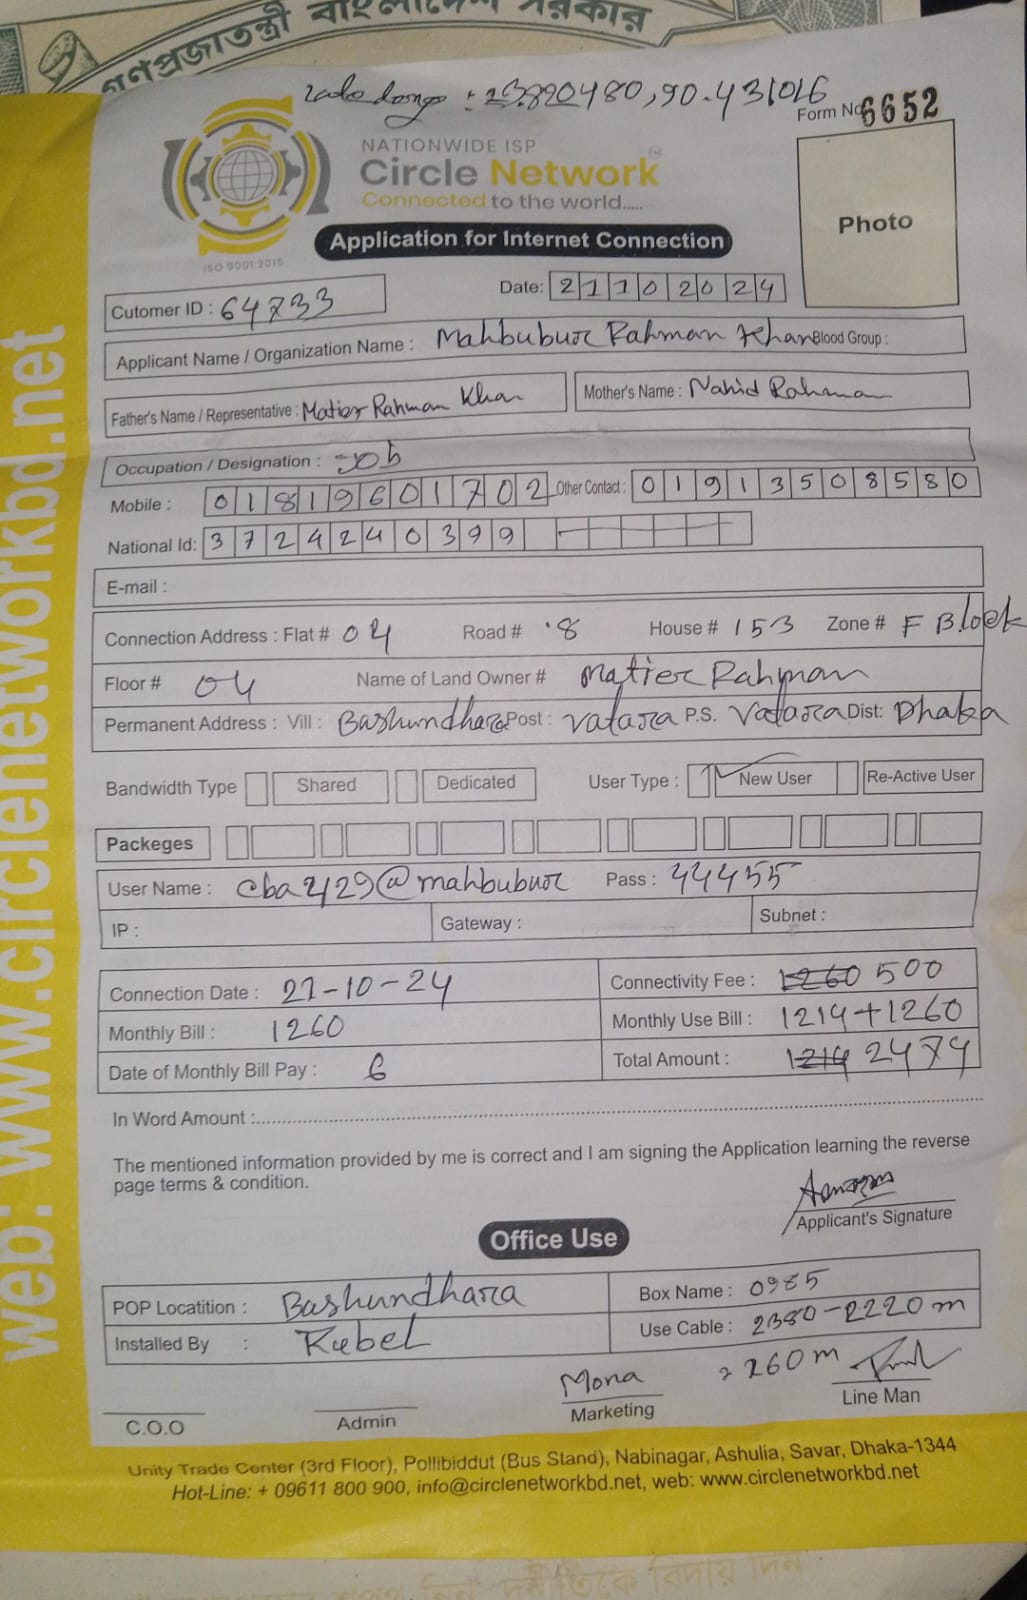 গণপ্রজাতন্ত্রী বাংলাদেশ সরকার
: 23.820480, 90.431016
Form No. 6652
NATIONWIDE ISP
Circle Network
Connected to the world.....
ISO 9001:2015
Application for Internet Connection
Photo
Cutomer ID : 64733
Date: 21102024
Applicant Name / Organization Name : Mahbubur Rahman Khan Blood Group :
Father's Name / Representative : Matior Rahman Khan Mother's Name : Nahid Rahman
Occupation / Designation : Job
Mobile : 01819601702 Other Contact : 01913508580
National Id: 3724240399
E-mail :
Connection Address : Flat # 04 Road # 8 House # 153 Zone # F Block
Floor # 04 Name of Land Owner # Matier Rahman
Permanent Address : Vill : Bashundhara Post : Vatara P.S. Vatara Dist: Dhaka
Bandwidth Type Shared Dedicated User Type : New User Re-Active User
Packeges
User Name : cba2129@mahbubur Pass : 44455
IP : Gateway : Subnet :
Connection Date : 21-10-24 Connectivity Fee : 1260 500
Monthly Bill : 1260 Monthly Use Bill : 1214+1260
Date of Monthly Bill Pay : 6 Total Amount : 1214 2474
In Word Amount :
The mentioned information provided by me is correct and I am signing the Application learning the reverse
page terms & condition.
Applicant's Signature
Office Use
POP Locatition : Bashundhara Box Name : 0985
Installed By : Rubel Use Cable : 2380-2220 m
= 260 m
Mona
C.O.O Admin Marketing Line Man
Unity Trade Center (3rd Floor), Pollibiddut (Bus Stand), Nabinagar, Ashulia, Savar, Dhaka-1344
Hot-Line: + 09611 800 900, info@circlenetworkbd.net, web: www.circlenetworkbd.net
web: www.circlenetworkbd.net
নিন দুর্নীতিকে বিদায় দিন